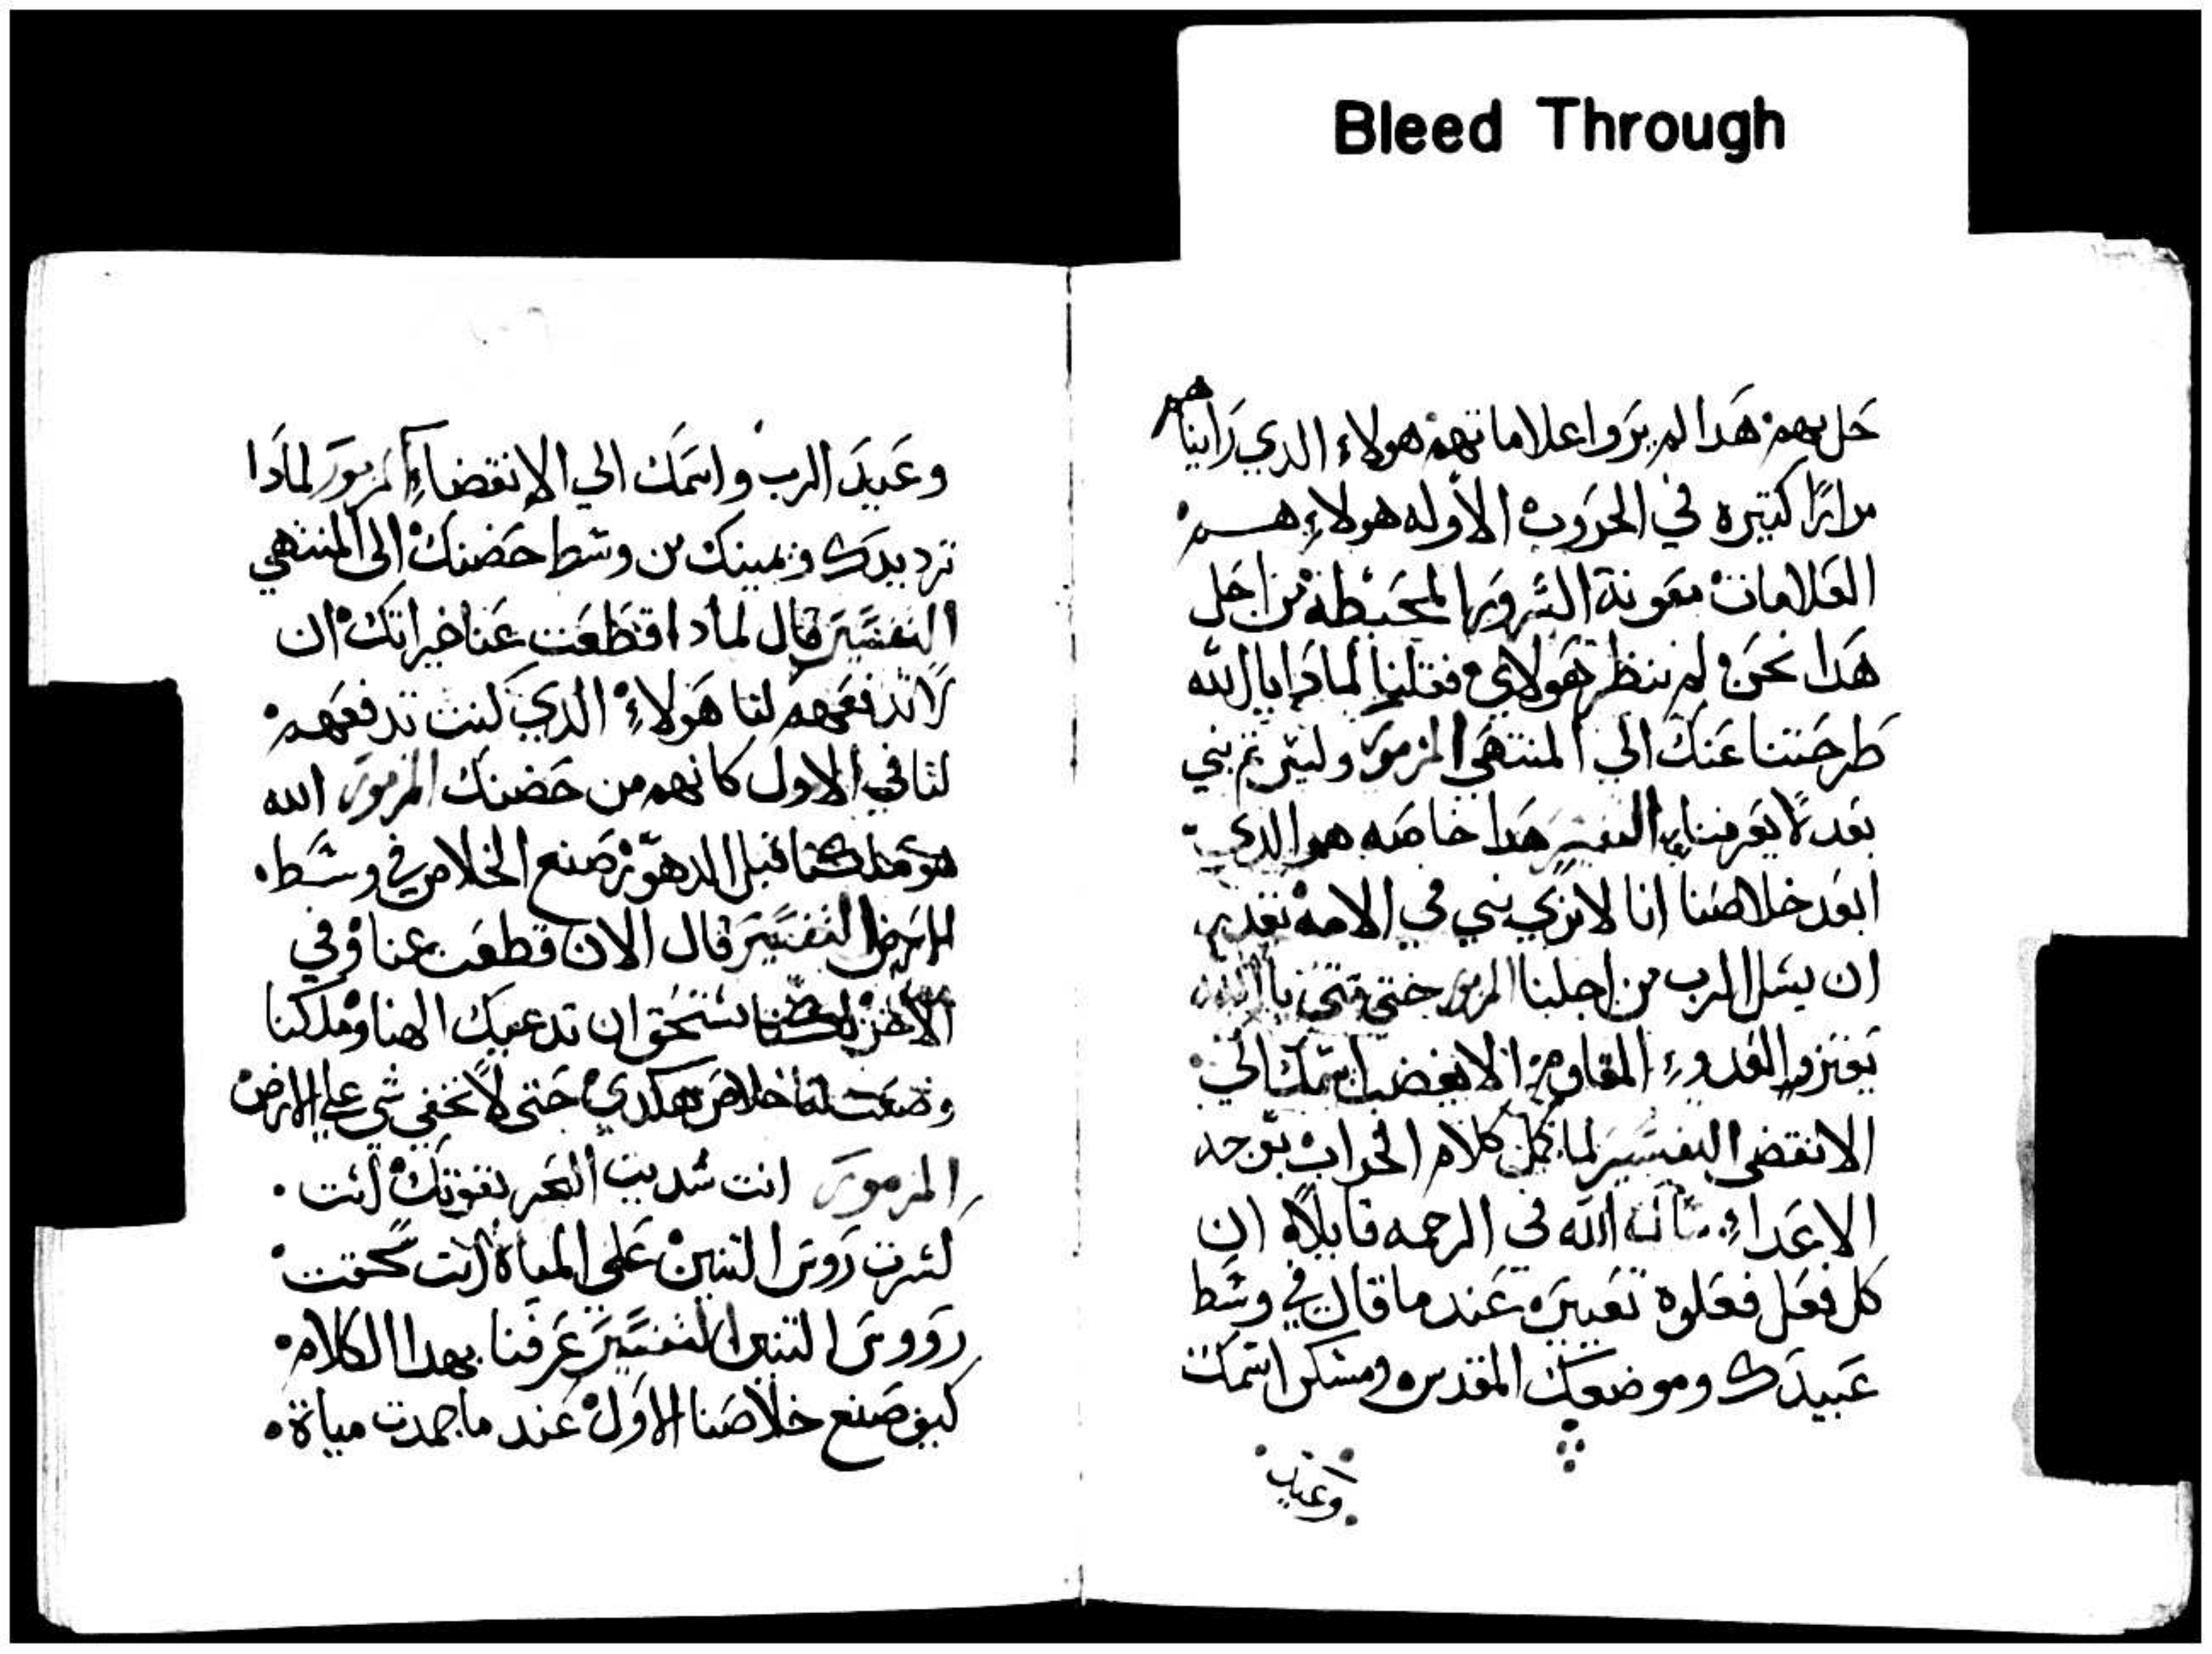 Bleed Through
حل بهم هدا لم يروا علاماتهم هولاء الدي رايناهم
مرارًا كتيره في الحروب الأوله هولاء هم
العلامات معونة الشرور المحيطة من اجل
هدا نحن لم ننظر هولاي فتلنا لمادا يا الله
طرحتنا عنك الي المنتهي المزمور وليس تم نبي
بعد لا يعرفنا التفسير هدا خاصه هو الدي
ابعد خلاصنا انا لا نري نبي في الامه تقدم
ان يسل الرب من اجلنا المزمور حتي متي يا الله
العدوء المقاوم الا يغضب اسمك الي
الانقضي التفسير لما كمل كلام الخراب
الاعداء الله في الرحمه قايلاً ان
كل فعل فعلوه عند ما قال في وسط
عبيدك وموضعك المقدس ومسكن اسمك
وعبيد
وعبيد الرب واسمك الي الانقضاء المزمور لمادا
ترد يدك ويمينك من وسط حضنك الي المنتهي
التفسير قال لمادا قطعت عنا خيراتك ان
لا تدفعهم لنا هولاء الدي كنت تدفعهم
لنا في الاول كانهم من حضنك المزمور الله
هو ملكنا قبل الدهور صنع الخلاص في وسط
الارض التفسير قال الان قطعت عنا وفي
الاخر يستحق ان ندعيك الهنا وملكنا
وصنعت لنا خلاص هكدي حتي لا تخفي شي علي الارض
المزمور انت شديت البحر بقوتك انت
كسرت روس التنين علي المياة انت سحقت
رووس التنين التفسير عرفنا بهدا الكلام
كيف صنع خلاصنا الاول عند ما جمدت مياة